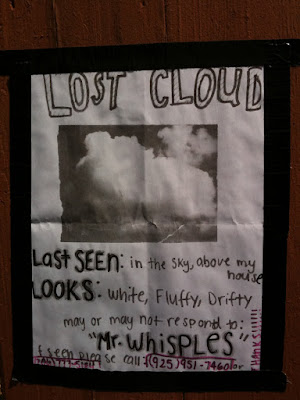 LOST CLOUD
Last SEEN: in the sky, above my house
LOOKS: white, Fluffy, Drifty
may or may not respond to:
"Mr. Whisples"
if seen please call: (925) 951-7460 or
THANKS!!!!!!